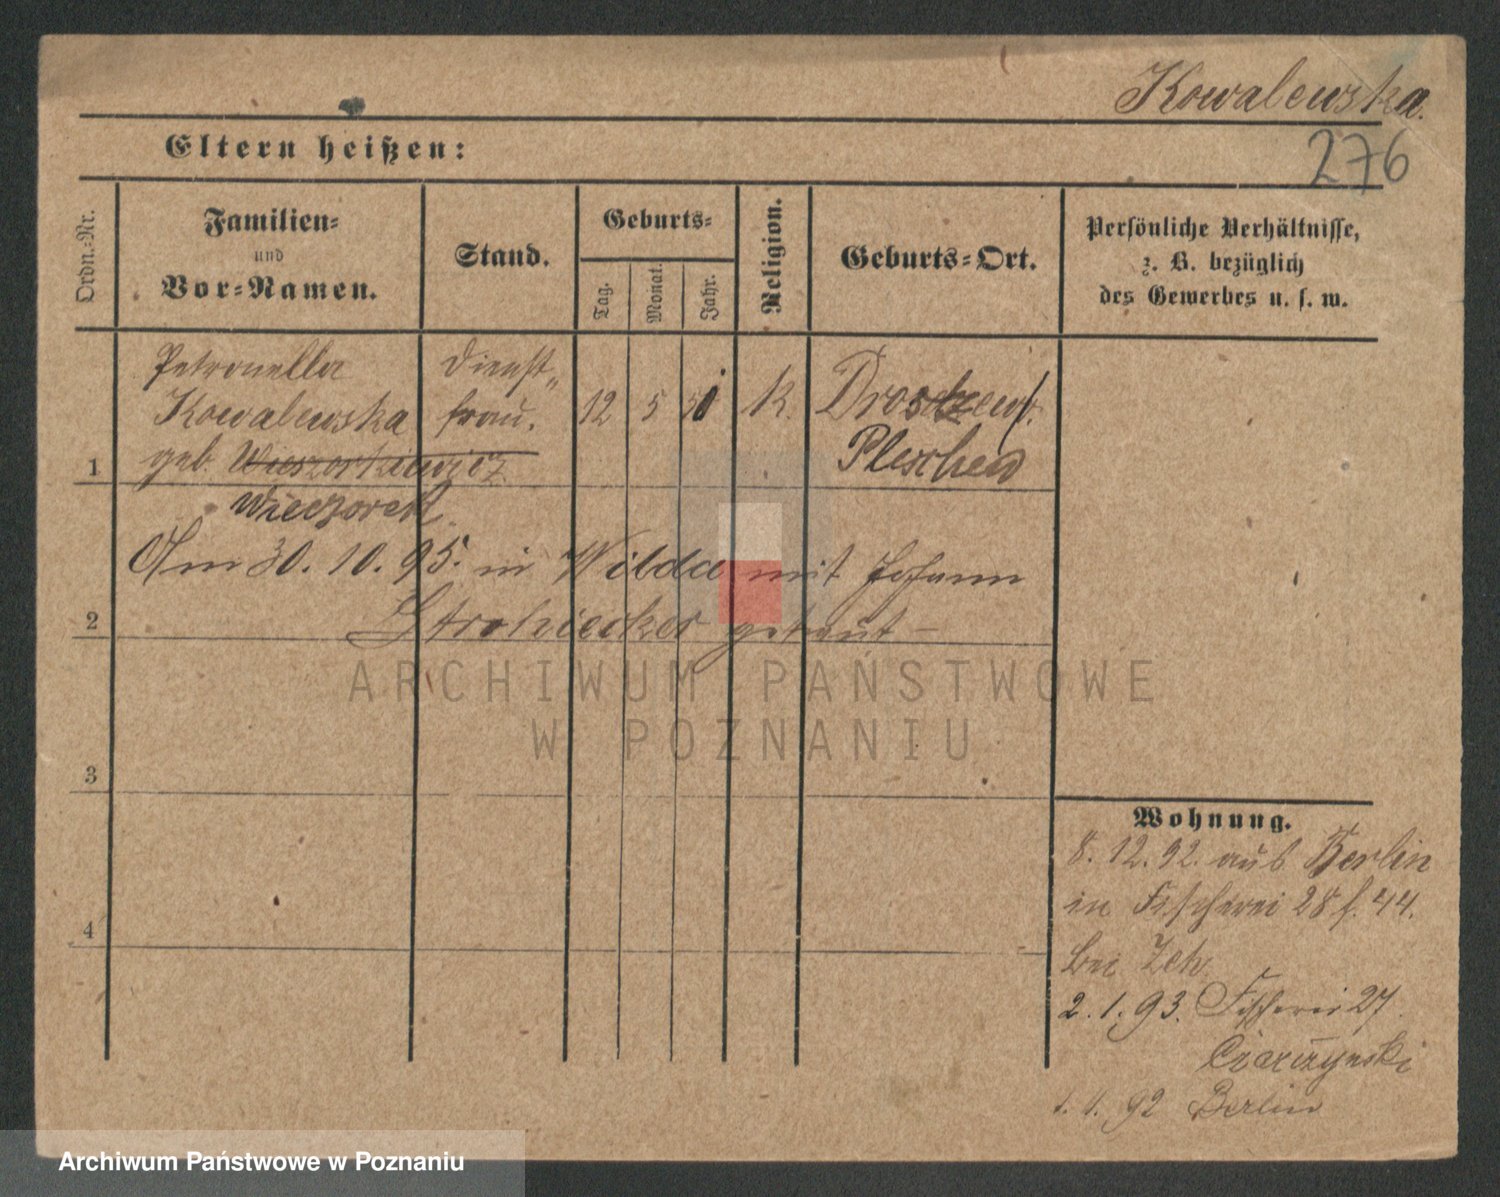 Kowalewska.
276
Eltern heißen:
Ordn.=Nr.
Familien=
und
Vor=Namen.
Stand.
Geburts=
Tag.
Monat.
Jahr.
Religion.
Geburts=Ort.
Persönliche Verhältnisse,
z. B. bezüglich
des Gewerbes u. s. w.
1
Petronella
Kowalewska
geb. Wieszorkiewicz
Wieczorek
Dienst„
frau.
12
5
K.
Pleschen
Am 30. 10. 95. in Wilda mit Johann
Strohiecker getraut –
2
3
4
Wohnung.
8. 12. 92. aus Berlin
in Fischerei 28 f. 44.
bei
2. 1. 93. Fischerei 27.
Berlin
ARCHIWUM PAŃSTWOWE
W POZNANIU
Archiwum Państwowe w Poznaniu